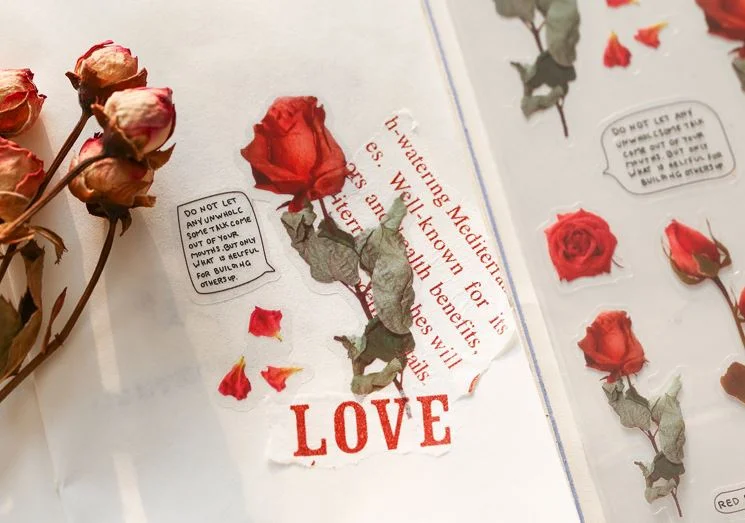 DO NOT LET
ANY UNWHOLE
SOME TALK COME
OUT OF YOUR
MOUTHS. BUT ONLY
WHAT IS HELPFUL
FOR BUILDING
OTHERS UP.
h-watering Mediterra
es. Well-known for its
ors and health benefits,
hes will
ails.
LOVE
DO NOT LET ANY
UNWHOLESOME TALK
COME OUT OF YOUR
MOUTHS. BUT ONLY
WHAT IS HELPFUL FOR
BUILDING OTHERS UP
RED